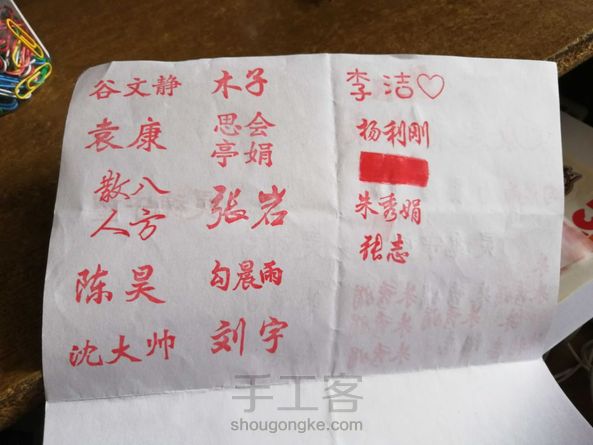 谷文静
袁康
散八
人方
陈昊
沈大帅
木子
思会
亭娟
张岩
勾晨雨
刘宇
李洁♡
杨利刚
朱秀娟
张志
手工客
shougongke.com